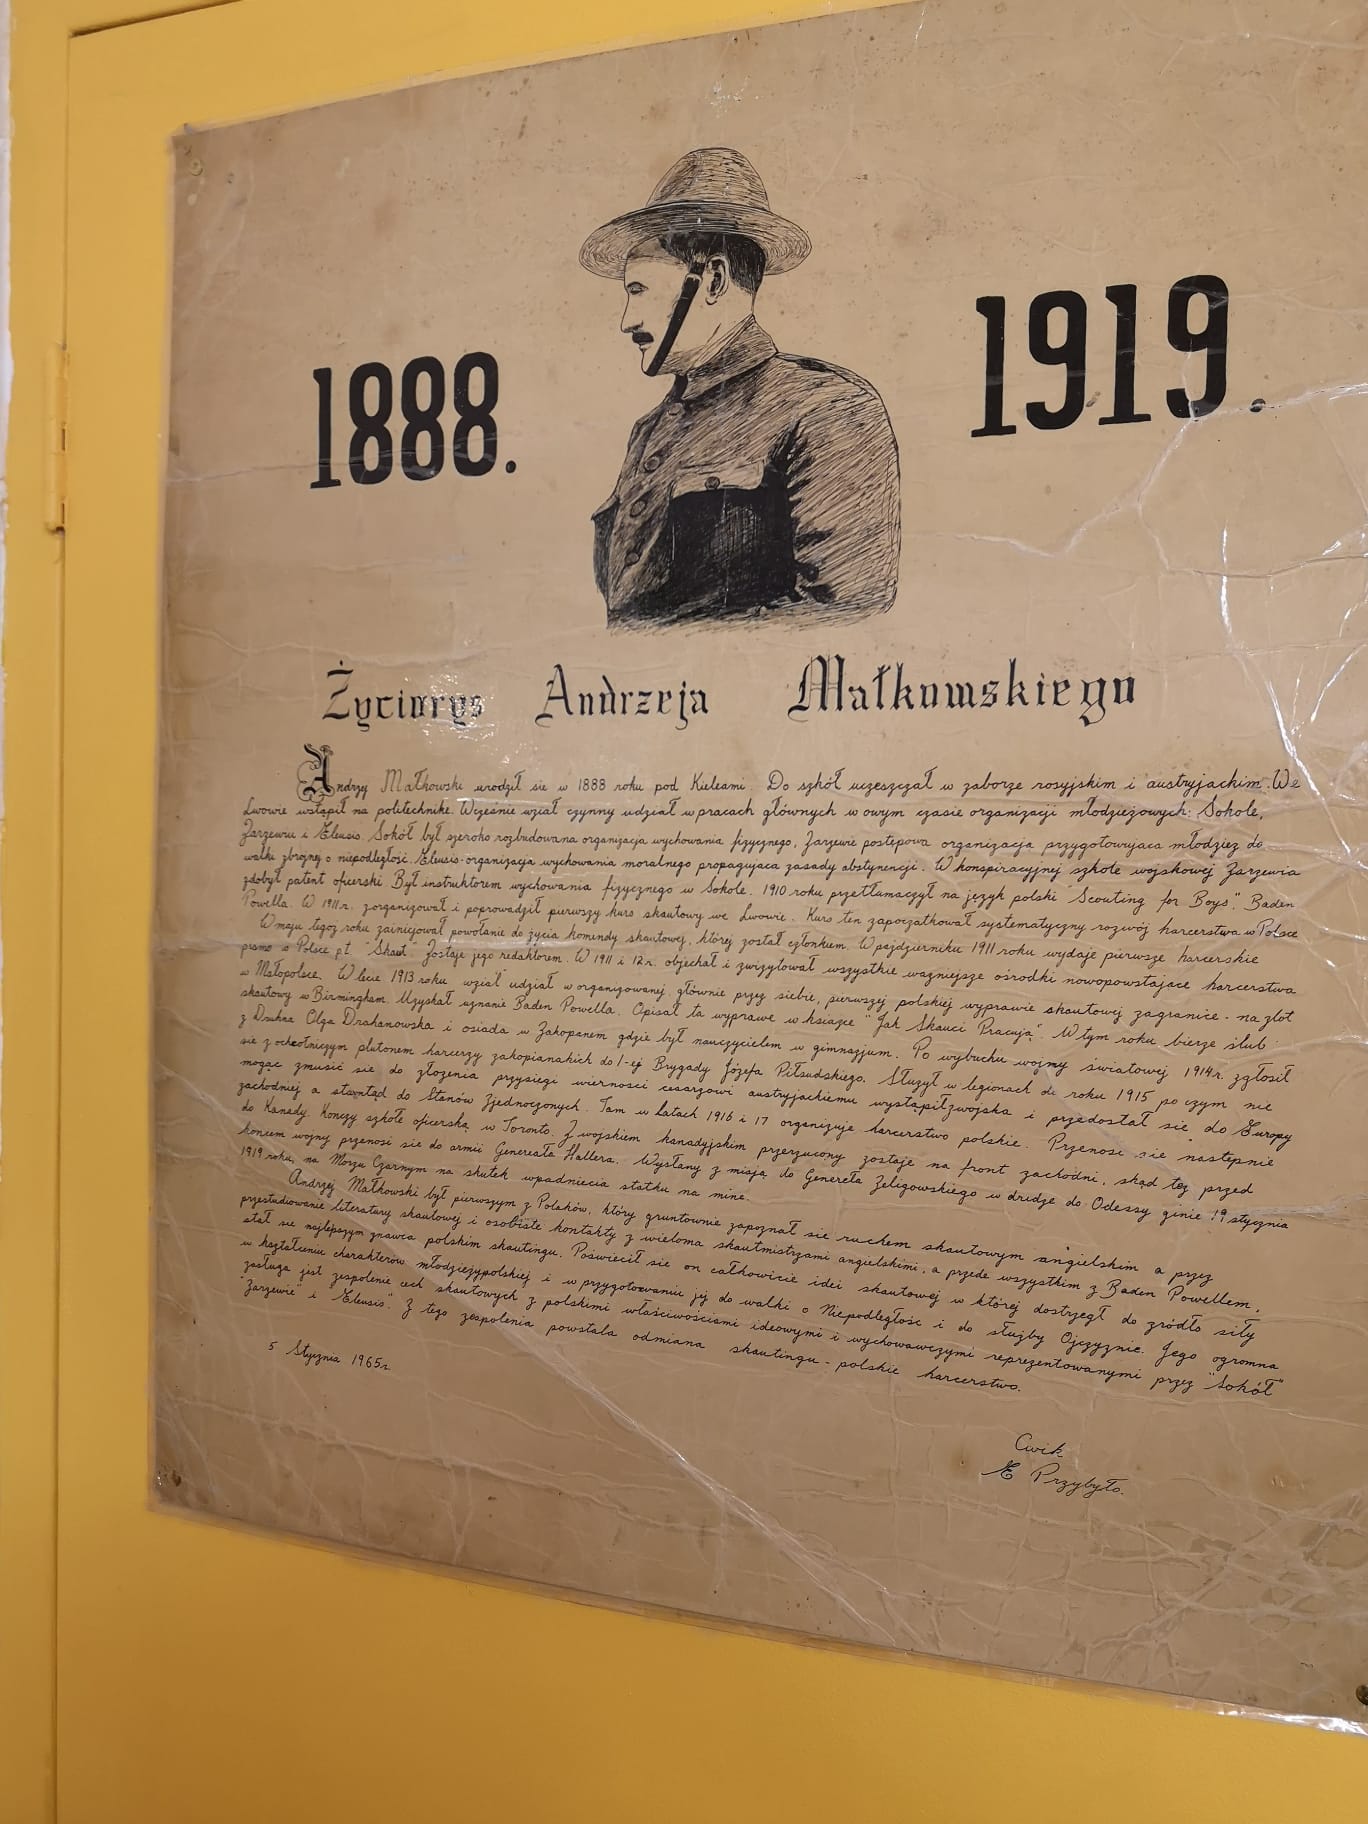 1888.
1919.
Życiorys Andrzeja Małkowskiego
Andrzy Małkowski urodził sie w 1888 roku pod Kielcami. Do szkół uczeszczał w zaborze rosyjskim i austryjackim. We
Lwowie wstąpił na politechnike. Wcześnie wziął czynny udział w pracach głównych w owym czasie organizacji młodzieżowych: Sokole,
Zarzewiu i Eleusis. Sokół był szeroko rozbudowana organizacja wychowania fizycznego, Zarzewie postępowa organizacja przygotowujaca młodzież do
walki zbrojnej o niepodległość. Eleusis-organizacja wychowania moralnego propagujaca zasady abstynencji. W konspiracyjnej szkole wojskowej Zarzewia
zdobył patent oficerski. Był instruktorem wychowania fizycznego w Sokole. 1910 roku przetłumaczył na język polski "Scouting for Boys". Baden
Powella. W 1911 r. zorganizował i poprowadził pierwszy kurs skautowy we Lwowie. Kurs ten zapoczatkował systematyczny rozwój harcerstwa w Polsce
W maju tegoż roku zainicjował powołanie do życia komendy skautowej, której został członkiem. W pażdzierniku 1911 roku wydaje pierwsze harcerskie
pismo w Polsce pt. "Skaut". Zostaje jego redaktorem. W 1911 i 12 r. objechał i zwizytował wszystkie ważniejsze ośrodki nowopowstajace harcerstwa
w Małopolsce. W lecie 1913 roku wział udział w organizowanej, głównie przez siebie, pierwszej polskiej wyprawie skautowej zagranice - na zlot
skautowy w Birmingham. Uzyskał uznanie Baden Powella. Opisał ta wyprawe w ksiażce "Jak Skauci Pracują". W tym roku bierze ślub
z Druhna Olga Drahanowska i osiada w Zakopanem gdzie był nauczycielem w gimnazjum. Po wybuchu wojny światowej 1914 r. zgłosił
sie z ochotniczym plutonem harcerzy zakopianakich do 1-ej Brygady Józefa Piłsudskiego. Służył w legionach do roku 1915 po czym nie
mogąc zmusić sie do złożenia przysiegi wierności cesarzowi austryjackiemu wystąpił z wojska i przedostał sie do Europy
zachodniej a stamtąd do Stanów Zjednoczonych. Tam w latach 1916 i 17 organizuje harcerstwo polskie. Przenosi sie następnie
do Kanady. Kończy szkołe oficerską w Toronto. Z wojskiem kanadyjskim przerzucony zostaje na front zachodni, skąd też przed
końcem wojny przenosi sie do armii Genereała Hallera. Wysłany z misją do Generała Żeligowskiego w drodze do Odessy ginie 19 stycznia
1919 roku, na Morzu Czarnym na skutek wpadniecia statku na mine.
Andrzej Małkowski był pierwszym z Polaków, który gruntownie zapoznał sie ruchem skautowym angielskim a przez
przestudiowanie literatury skautowej i osobiste kontakty z wieloma skautmistrzami angielskimi, a przede wszystkim z Baden Powellem,
stał sie najlepszym znawca polskim skautingu. Poświecił sie on całkowicie idei skautowej w której dostrzegł do zródło siły
w kształceniu charakterów młodzieży polskiej i w przygotowaniu jej do walki o Niepodległość i do służby Ojczyznie. Jego ogromna
zasługa jest zespolenie cech skautowych z polskimi właściwościami ideowymi i wychowawczymi reprezentowanymi przez "Sokół"
"Zarzewie" i "Eleusis". Z tego zespolenia powstala odmiana skautingu - polskie harcerstwo.
5 Stycznia 1965 r.
Cwik
E Przybyło.